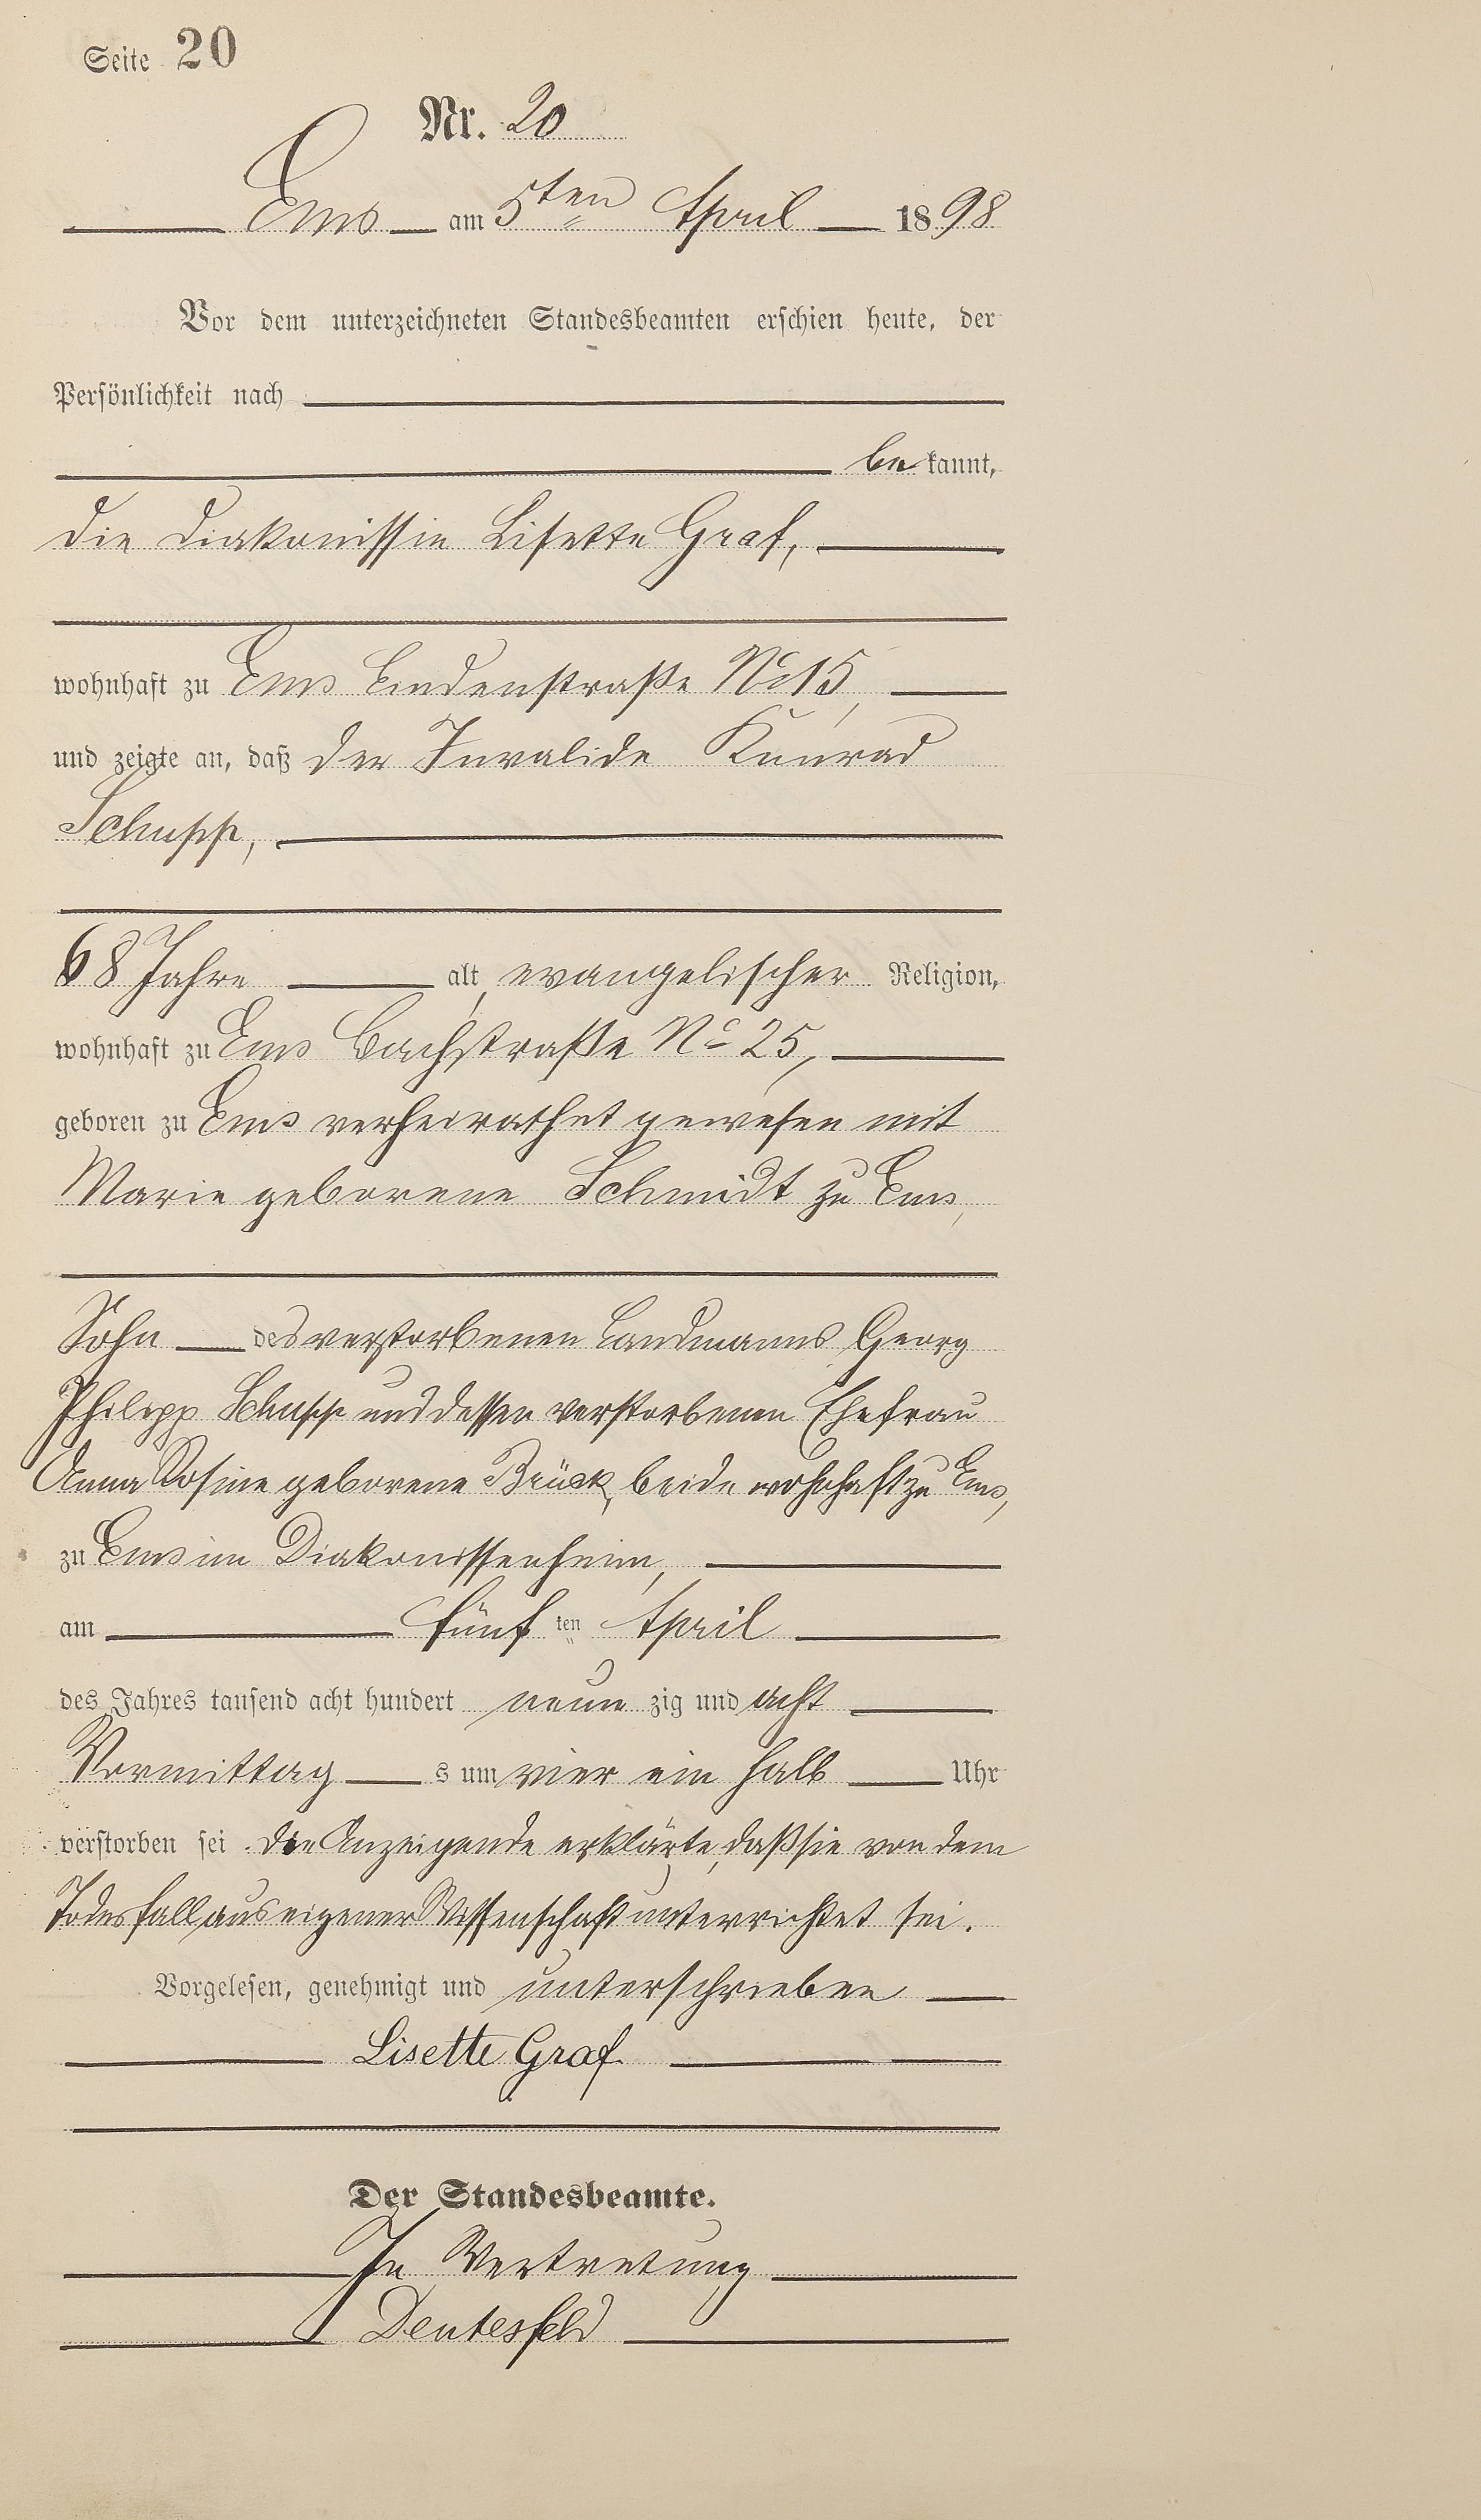 Seite 20
Nr. 20
Ems am 5ten April 1898
Vor dem unterzeichneten Standesbeamten erschien heute, der
Persönlichkeit nach
bekannt,
die Diakonissin Lisette Graf,
wohnhaft zu Ems Lindenstraße No 15,
und zeigte an, daß der Invalide Kunrad
Schupp,
68 Jahre alt, evangelischer Religion,
wohnhaft zu Ems Bachstraße No 25,
geboren zu Ems verheirathet gewesen mit
Marie geborene Schmidt zu Ems,
Sohn des verstorbenen Landmanns Georg
Philipp Schupp und dessen verstorbenen Ehefrau
Anna Rosine geborene Brück, beide wohnhaft zu Ems,
zu Ems im Diakonissenheim,
am fünften April
des Jahres tausend acht hundert neunzig und acht
Vormittags um vier ein halb Uhr
verstorben sei. Die Anzeigende erklärte, daß sie von dem
Todesfall aus eigener Wissenschaft unterrichtet sei.
Vorgelesen, genehmigt und unterschrieben
Lisette Graf
Der Standesbeamte.
In Vertretung
Deutesfeld